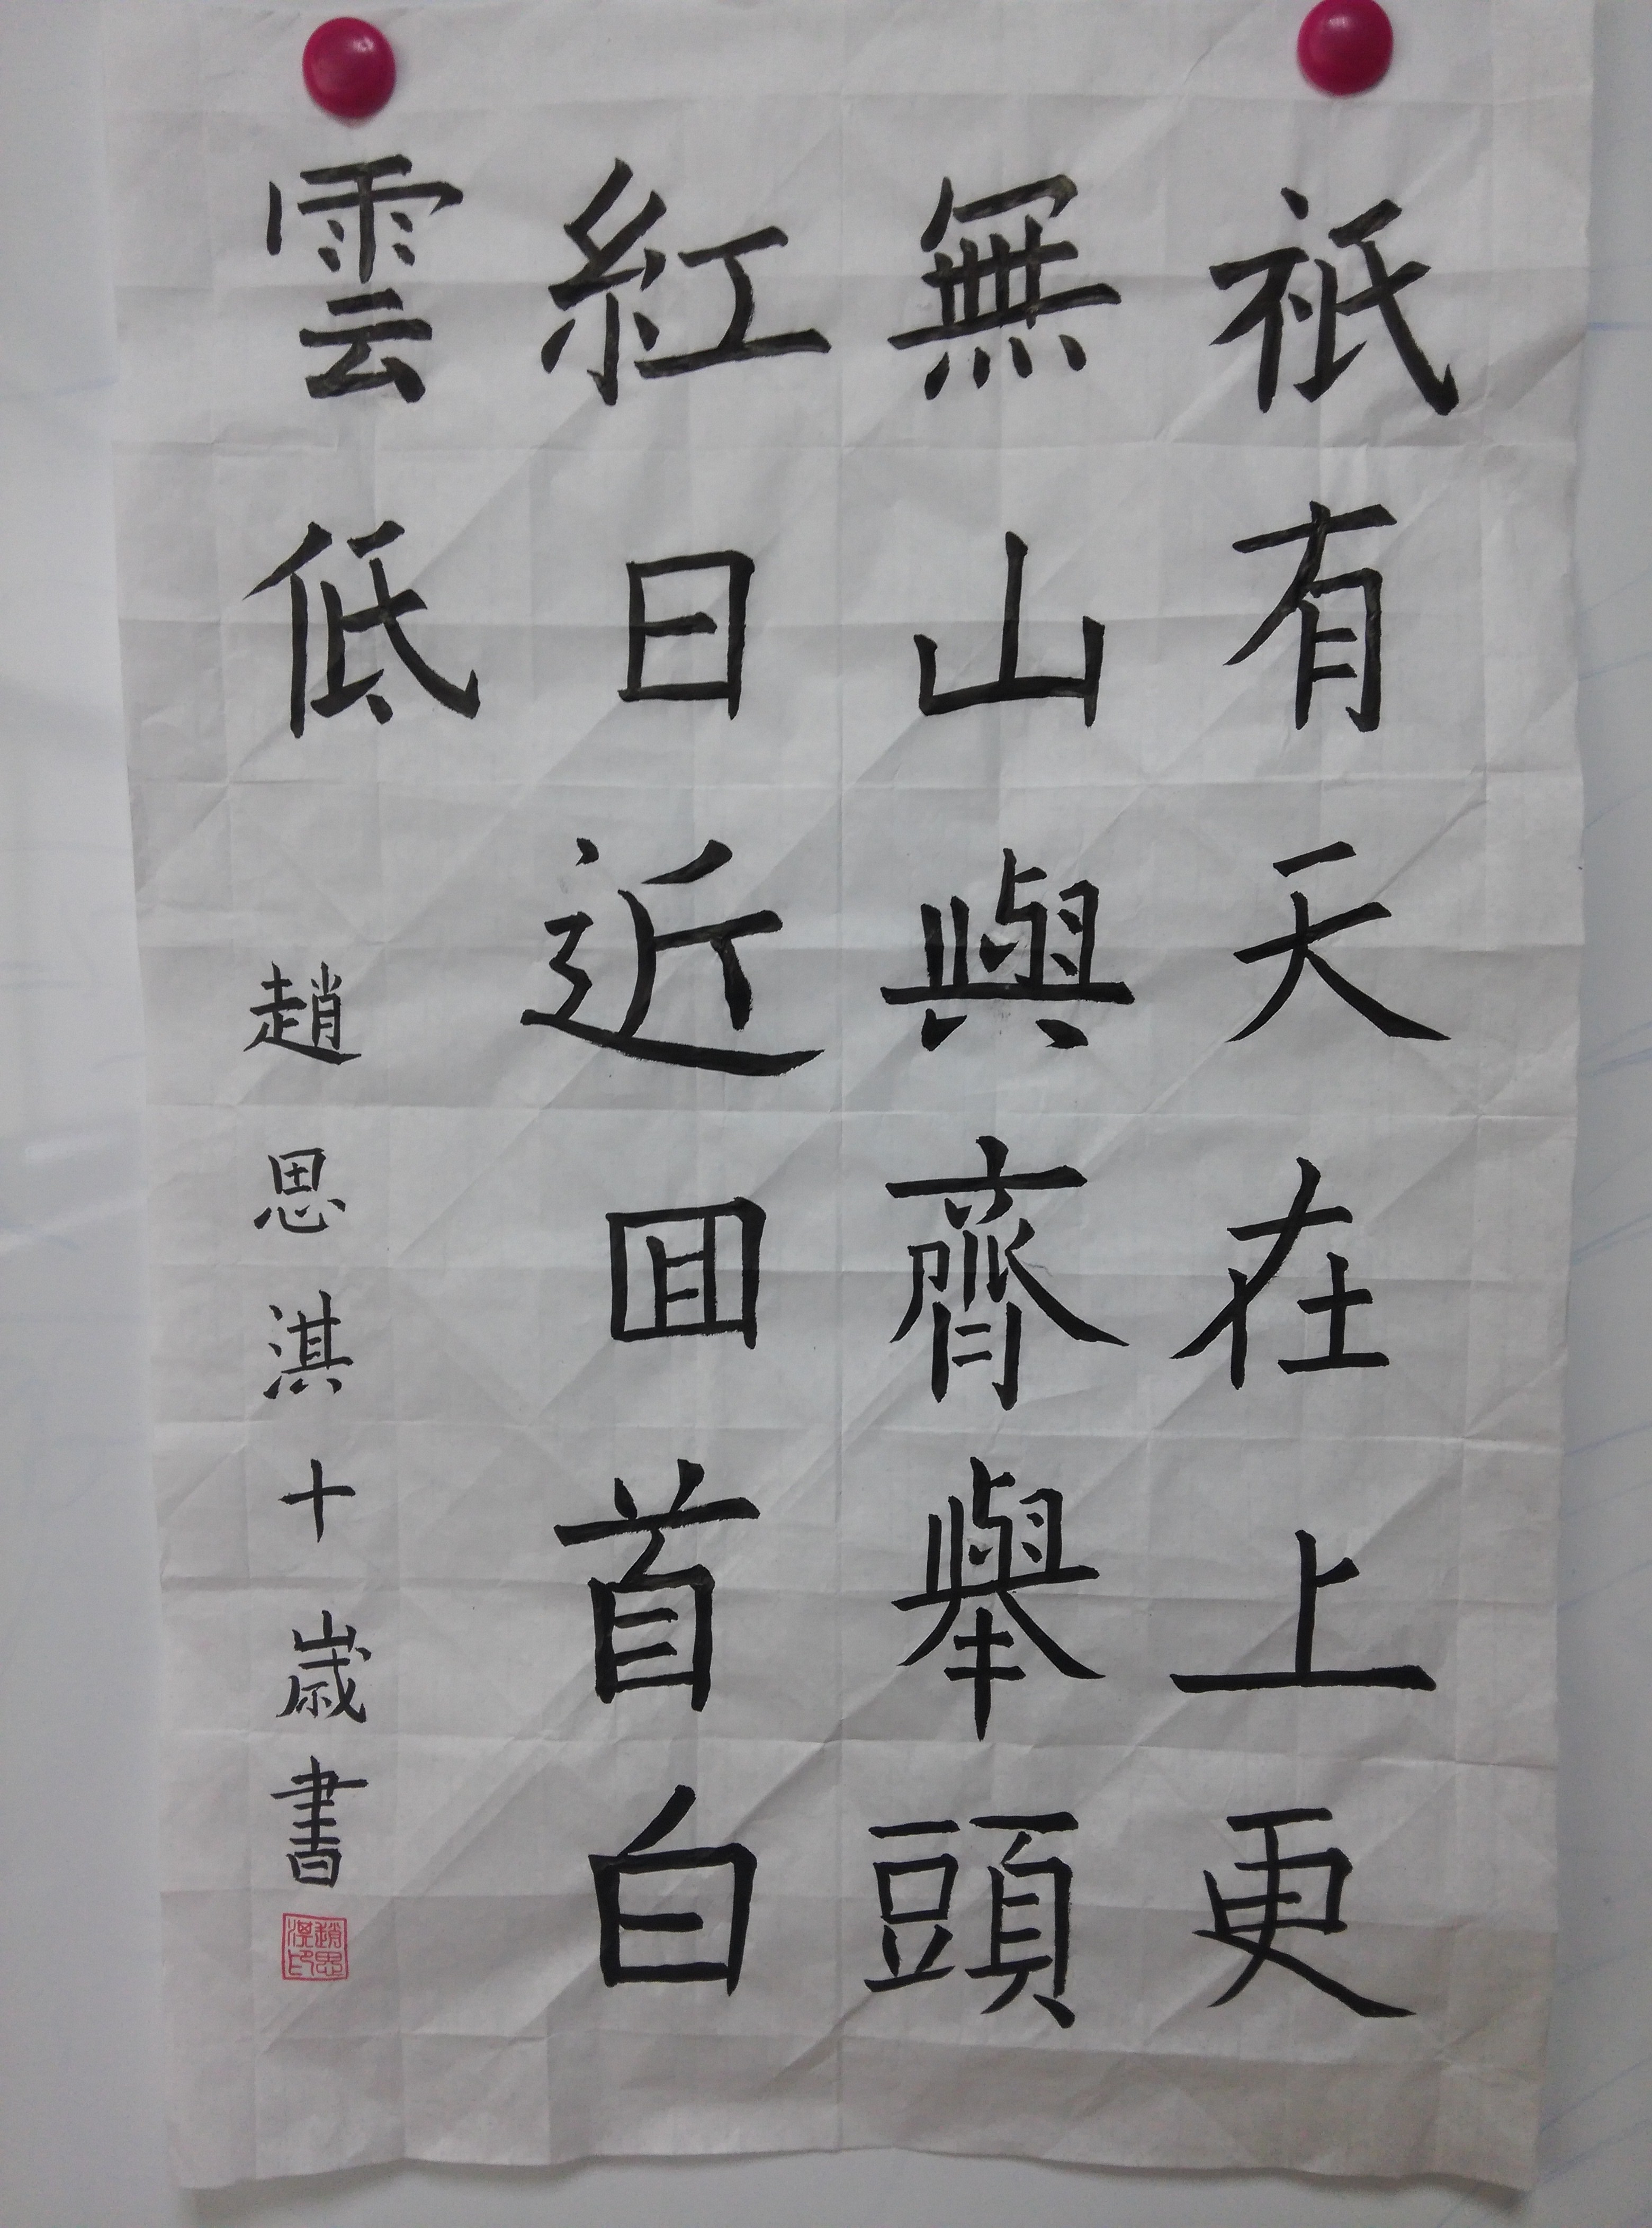 祇有天在上更
無山與齊舉頭
紅日近囬首白
雲低
趙思淇十歲書
趙思淇印